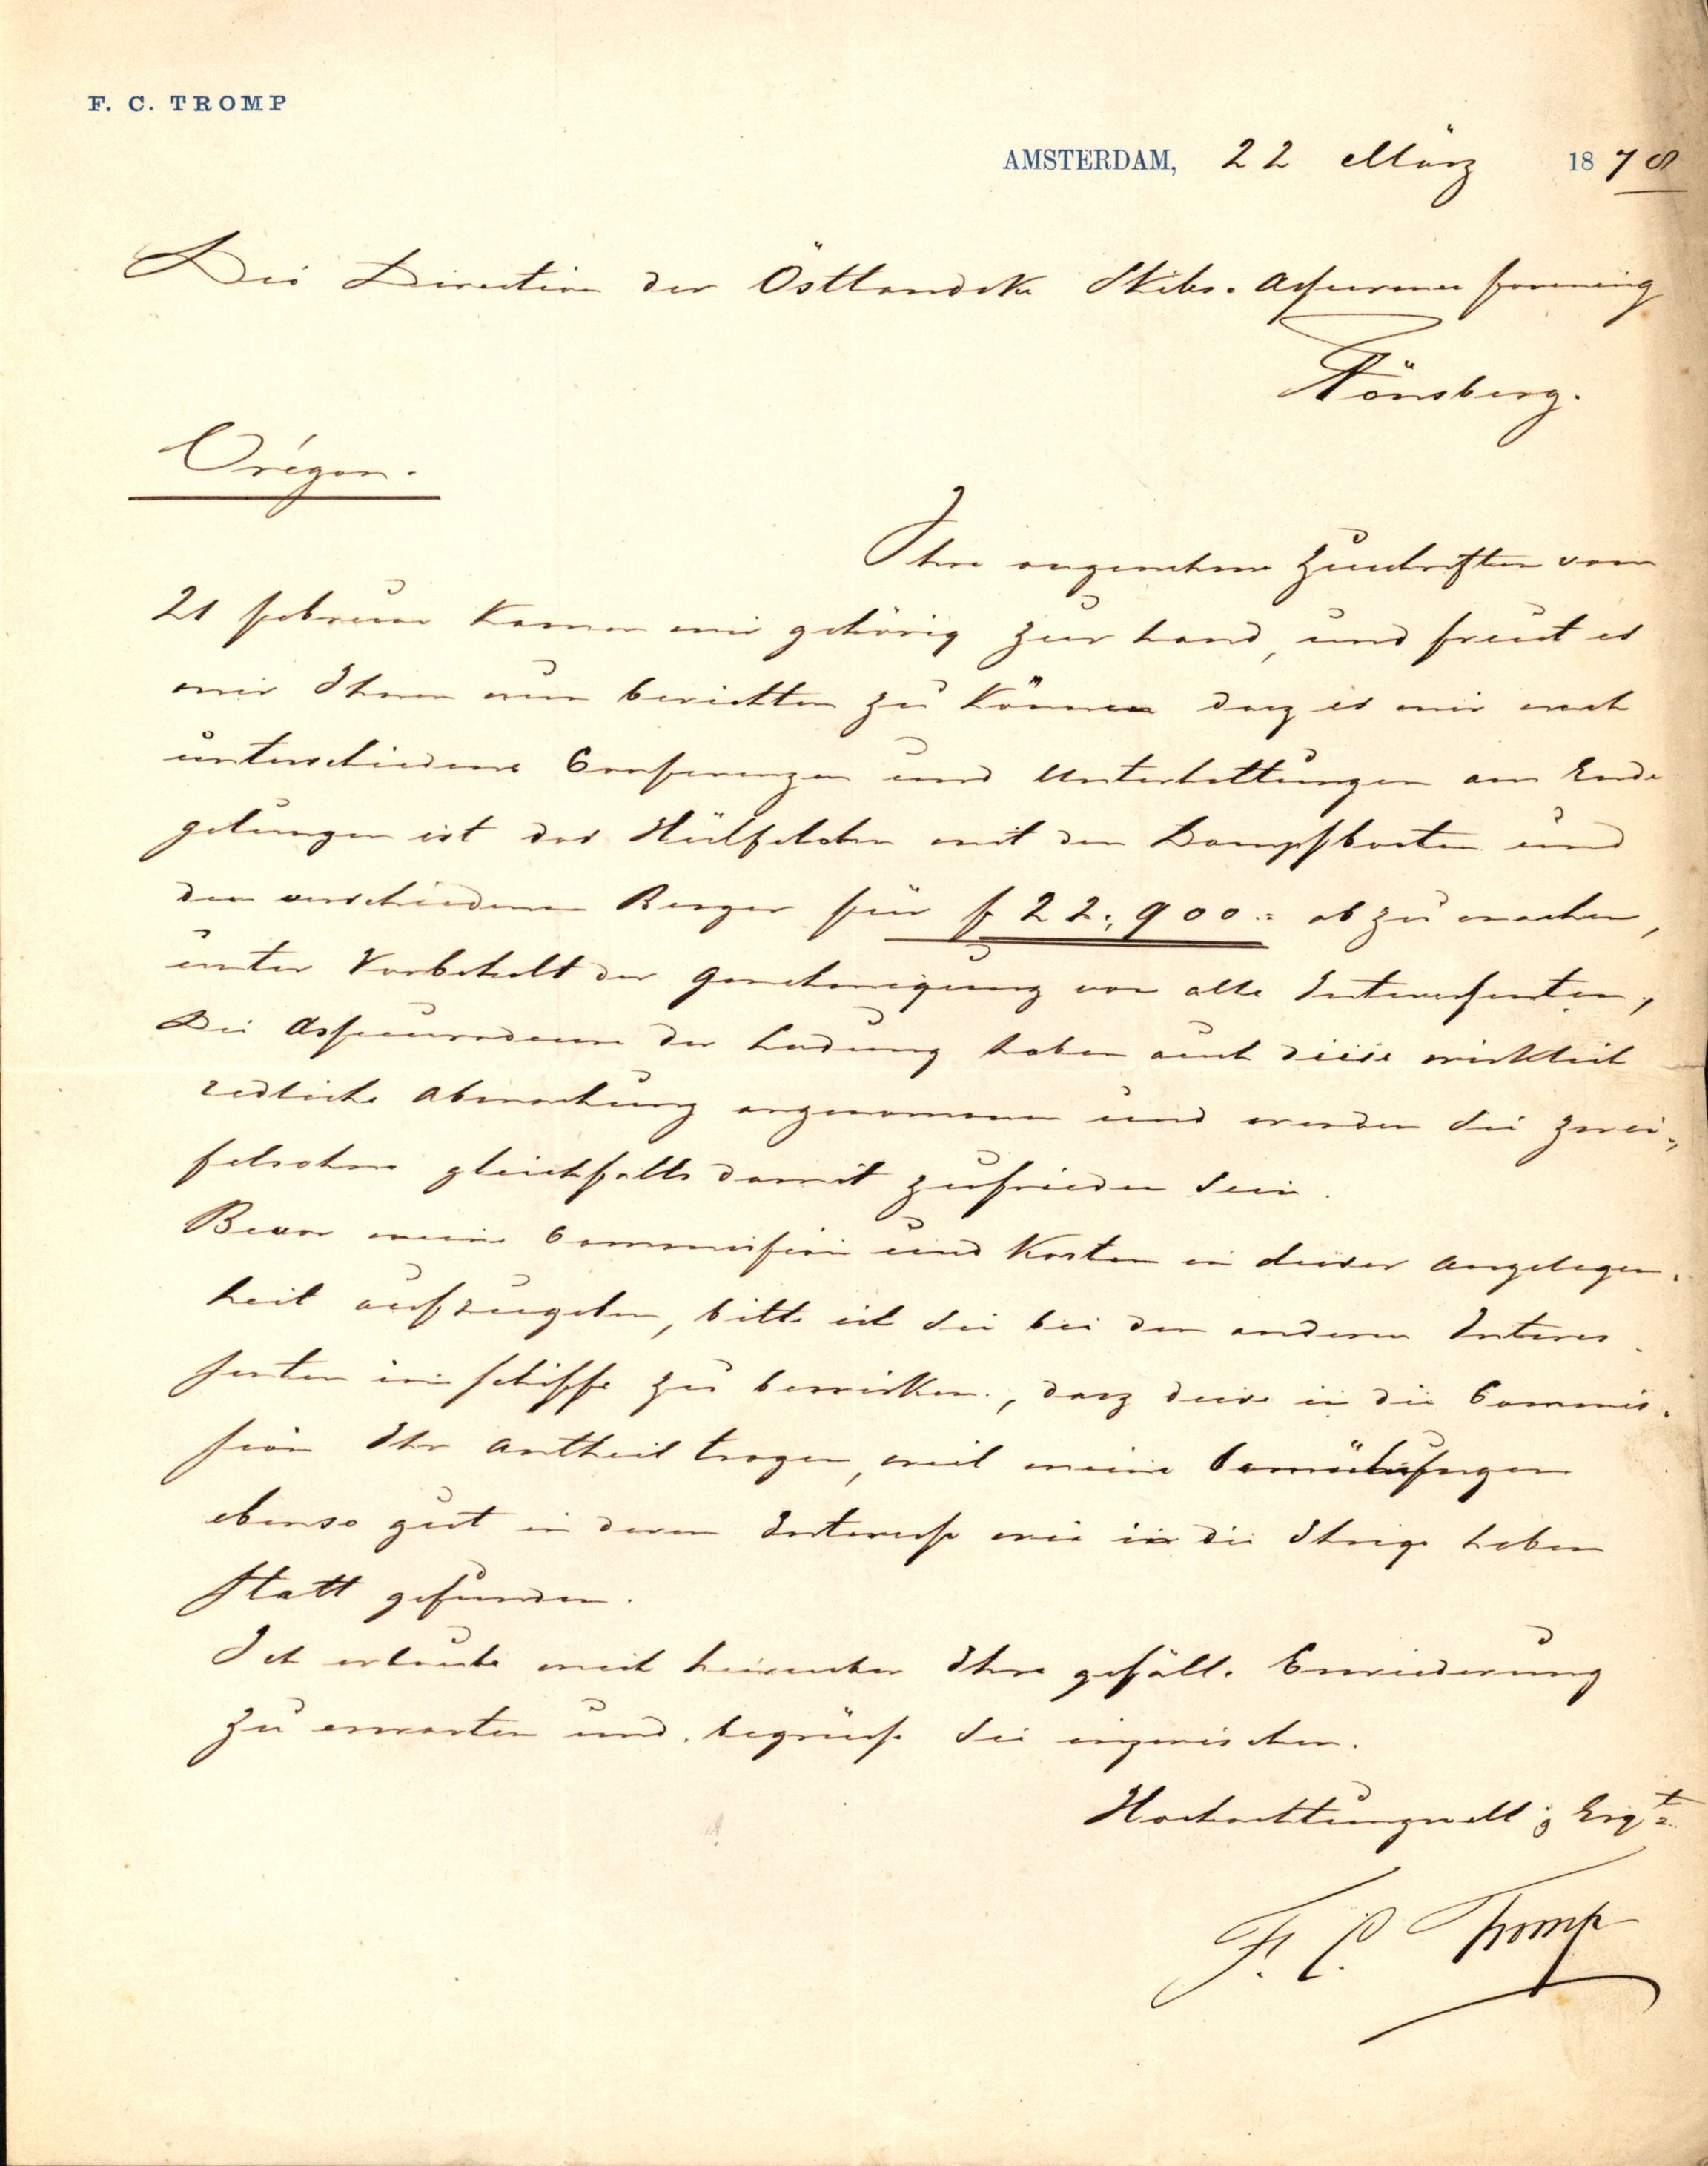 F. C. TROMP
AMSTERDAM, 22 März 1878
Die Direction der Östlandske Skibs. Assurance forening
Tönsberg.
Orégon.
Ihre angenehme Zuschriften vom
21 februar kamen mir gehörig zur hand, und freut es
mir Ihnen nun berichten zu können dasz es mir nach
unterschiedene Conferenzen und Unterhattungen am Ende
gelungen ist das Hülfslohn mit den Dampfbooten und
den verschiedenen Berger für f 22,900.= ab zu machen,
unter Vorbehalt der Genehmigung von alle Interessenten,
Die Assecuradeure der Ladung haben auch diese wirklich
redliche Abmachung angenommen und werden Sie zwei„
felsohne gleichfalls damit zufrieden sein.
Bevor meine Commission und Kosten in dieser Angelegen.
heit aufzugeben, bitte ich Sie bei den anderen Interes.
senten im schiffe zu bewirken, dasz diese in die Commis.
sion Ihr Antheil tragen, weil meine
ebenso gut in deren Interesse wie in die Ihrige haben
statt gefunden.
Ich erlaube mich hierueber Ihre gefäll. Erwiederung
zu erwarten und begrüsse Sie inzwischen.
Hochachtungsvoll & Ergt
F. C. Tromp